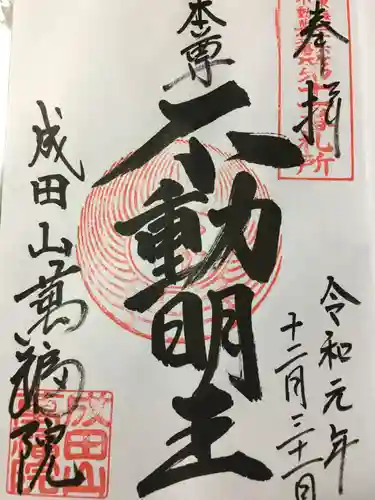 奉拝
札所
令和元年
十二月三十一日
本尊
不動明王
成田山萬福院
成田山
萬福院